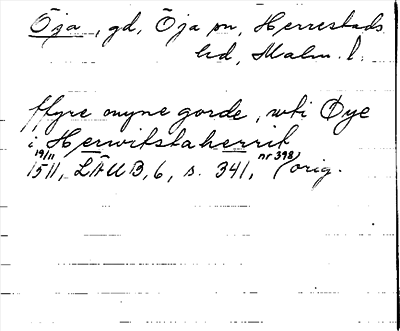 Öja, gd, Öja sn, Herrestads
hd, Malm. l.
ffyre myne gorde, wti Øye
i Herwitstaherrit
19/11 1511, LÄUB, 6, s. 341, nr 398, (orig.